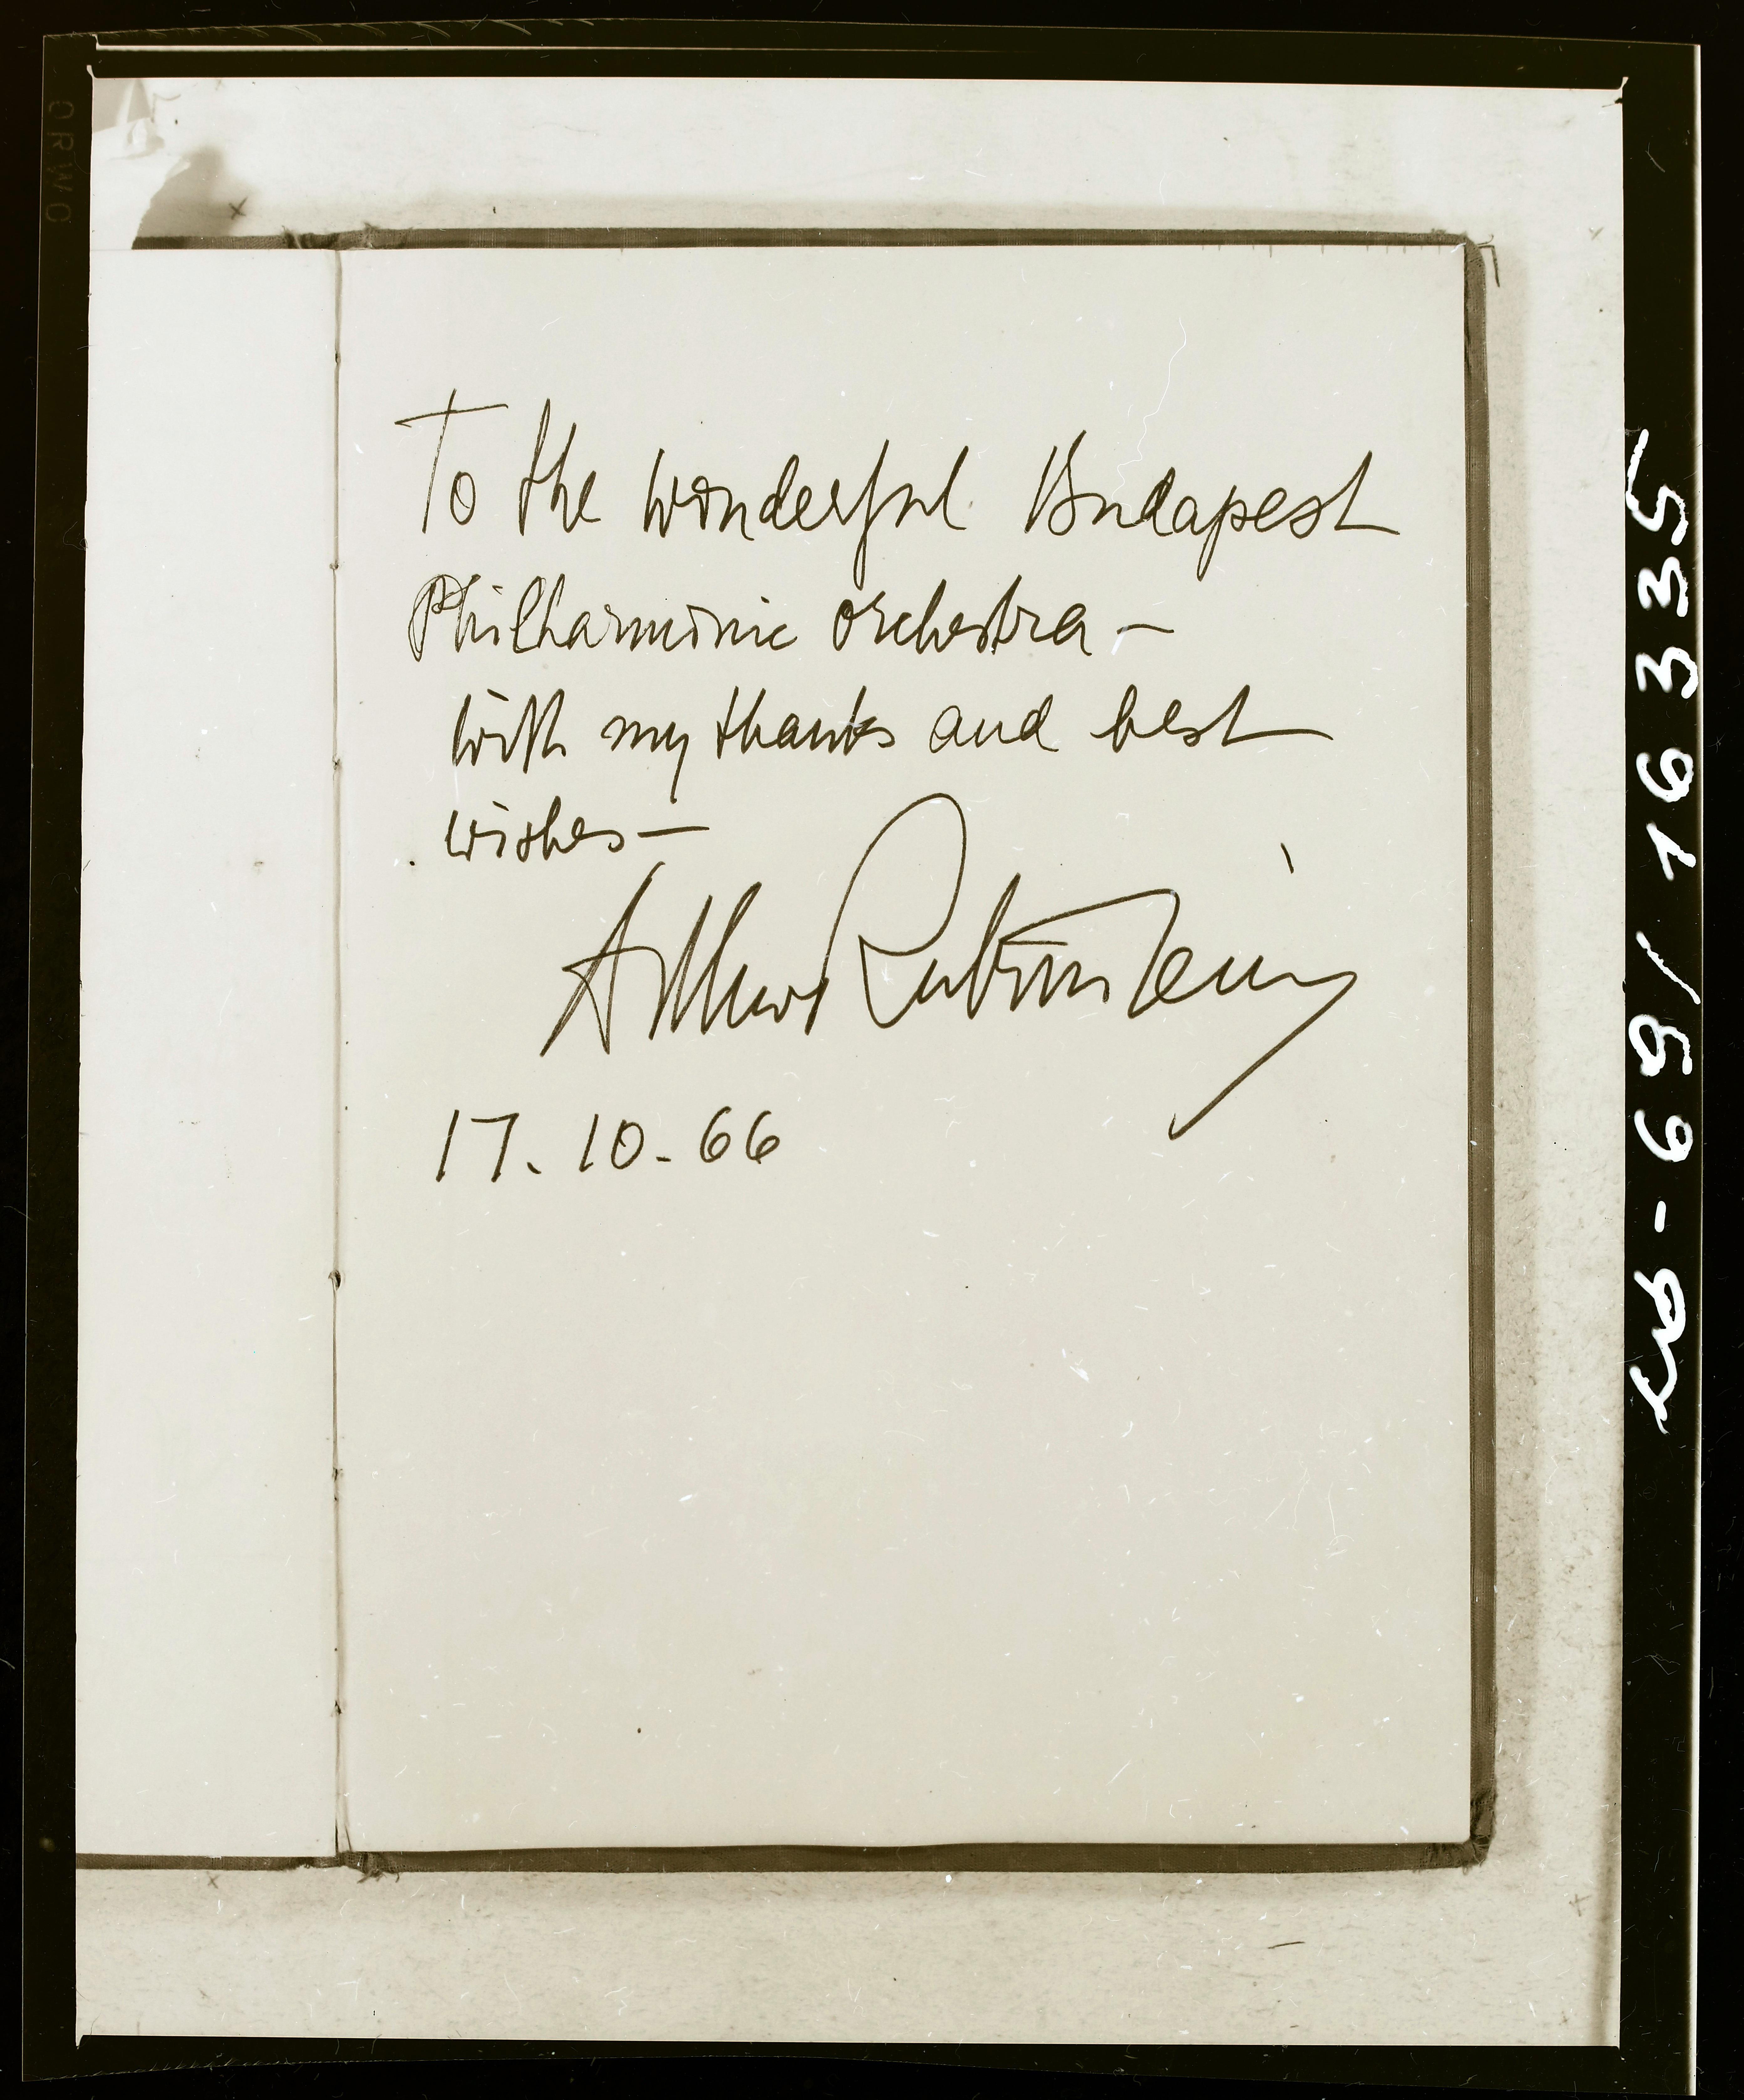 To the wonderful Budapest
Philharmonic orchestra —
with my thanks and best
wishes —
Arthur Rubinstein
17. 10. 66
ORWO